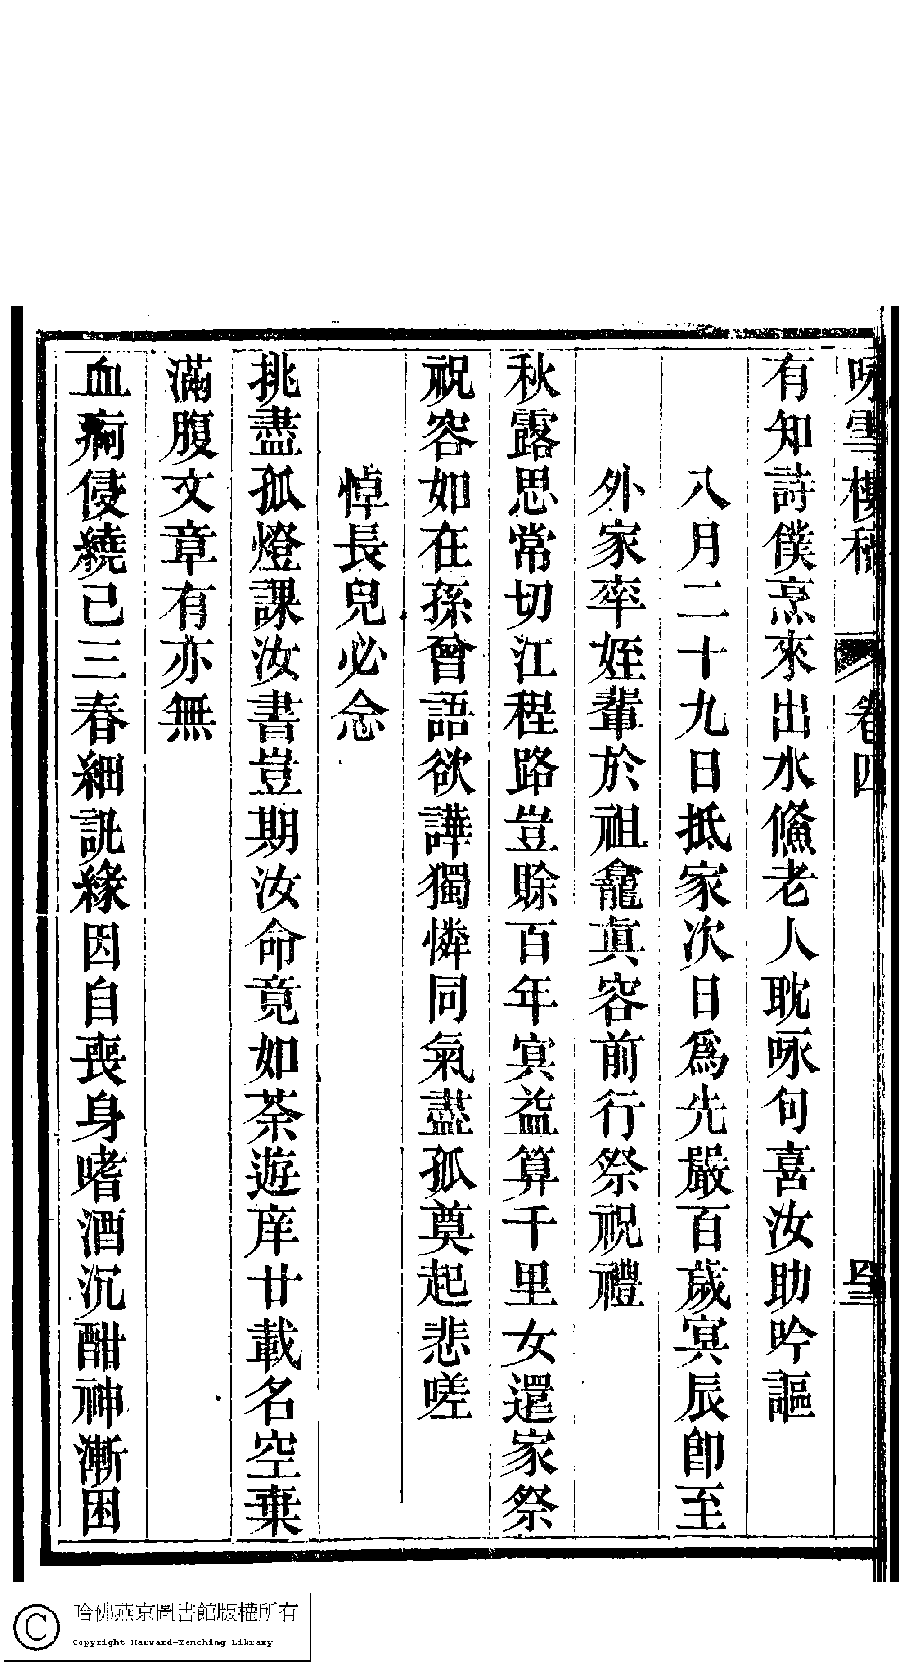 咏雪樓稿 卷四 四三
有知詩僕烹來出水鯈老人耽啄句喜汝助吟謳
八月二十九日抵家次日為先嚴百歲冥辰卽至
外家率姪輩於祖龕眞容前行祭祝禮
秋露思常切江程路豈賒百年冥益算千里女還家祭
祝容如在孫曾語欲譁獨憐同氣盡孤奠起悲嗟
悼長兒必念
挑盡孤燈課汝書豈期汝命竟如荼遊庠廿載名空棄
滿腹文章有亦無
血痾侵繞已三春細訊緣因自喪身嗜酒沉酣神漸困
哈佛燕京圖書館版權所有
Copyright Harvard-Yenching Library